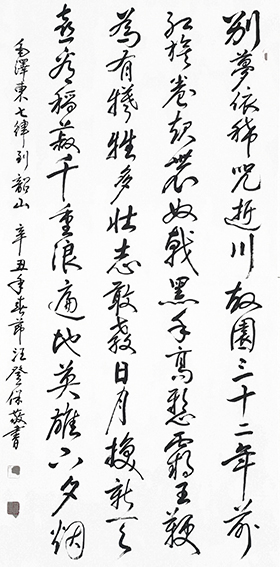 别夢依稀咒逝川故園三十二年前
红旗卷起農奴戟黑手高懸霸王鞭
為有犧牲多壯志敢教日月換新天
喜看稻菽千重浪遍地英雄下夕烟
毛澤東七律到韶山 辛丑年春節汪登保敬書